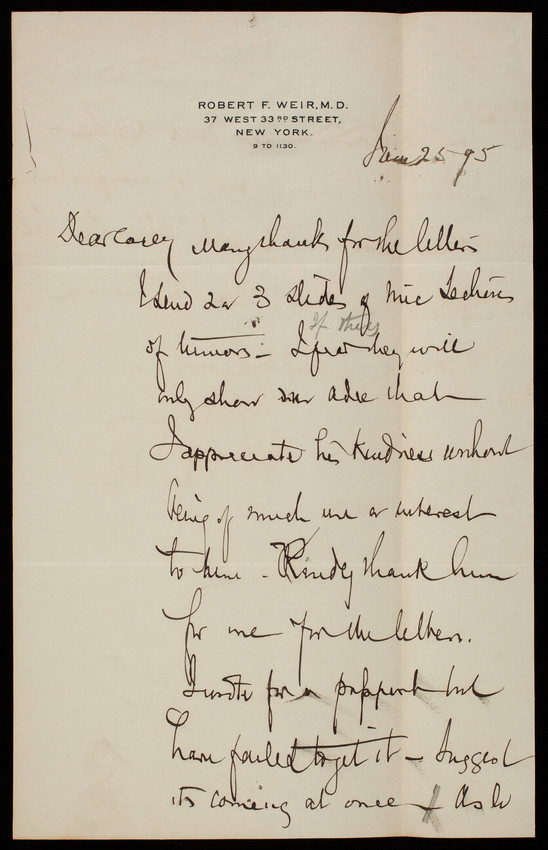 ROBERT F. WEIR, M.D.
37 WEST 33RD STREET,
NEW YORK.
9 TO 11.30.
June 25 95
Dear Casey Many thanks for the letters
I send 2 or 3 slides of mic Sections
If they
of tumors - I fear they will
only show that
I appreciate his kindness without
being of much use or interest
to him. Kindly thank him
for me for the letters.
I wrote for a passport but
have failed to get it - Suggest
its coming at once - As to